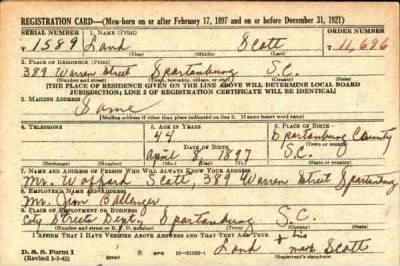 REGISTRATION CARD—(Men born on or after February 17, 1897 and on or before December 31, 1921)
SERIAL NUMBER 1. NAME (Print) ORDER NUMBER
T 1589 Land Scott 11,686
(First) (Middle) (Last)
2. PLACE OF RESIDENCE (Print)
389 Warren Street Spartanburg S.C.
(Number and street) (Town, township, village, or city) (County) (State)
[THE PLACE OF RESIDENCE GIVEN ON THE LINE ABOVE WILL DETERMINE LOCAL BOARD
JURISDICTION; LINE 2 OF REGISTRATION CERTIFICATE WILL BE IDENTICAL]
3. MAILING ADDRESS
Same
[Mailing address if other than place indicated on line 2. If same insert word same]
4. TELEPHONE 5. AGE IN YEARS 6. PLACE OF BIRTH
44 Spartanburg County
DATE OF BIRTH (Town or county)
April 8 1897 S.C.
(Exchange) (Number) (Mo.) (Day) (Yr.) (State or country)
7. NAME AND ADDRESS OF PERSON WHO WILL ALWAYS KNOW YOUR ADDRESS
Mr. Scott, 389 Warren Street Spartanburg
8. EMPLOYER'S NAME AND ADDRESS
Mr. Jim Ballenger
9. PLACE OF EMPLOYMENT OR BUSINESS
City Streets Dept. Spartanburg S.C.
(Number and street or R. F. D. number) (Town) (County) (State)
I AFFIRM THAT I HAVE VERIFIED ABOVE ANSWERS AND THAT THEY ARE TRUE.
his
D. S. S. Form 1 Land + Scott
(Revised 1-1-42) (over) mark
(Registrant's signature)